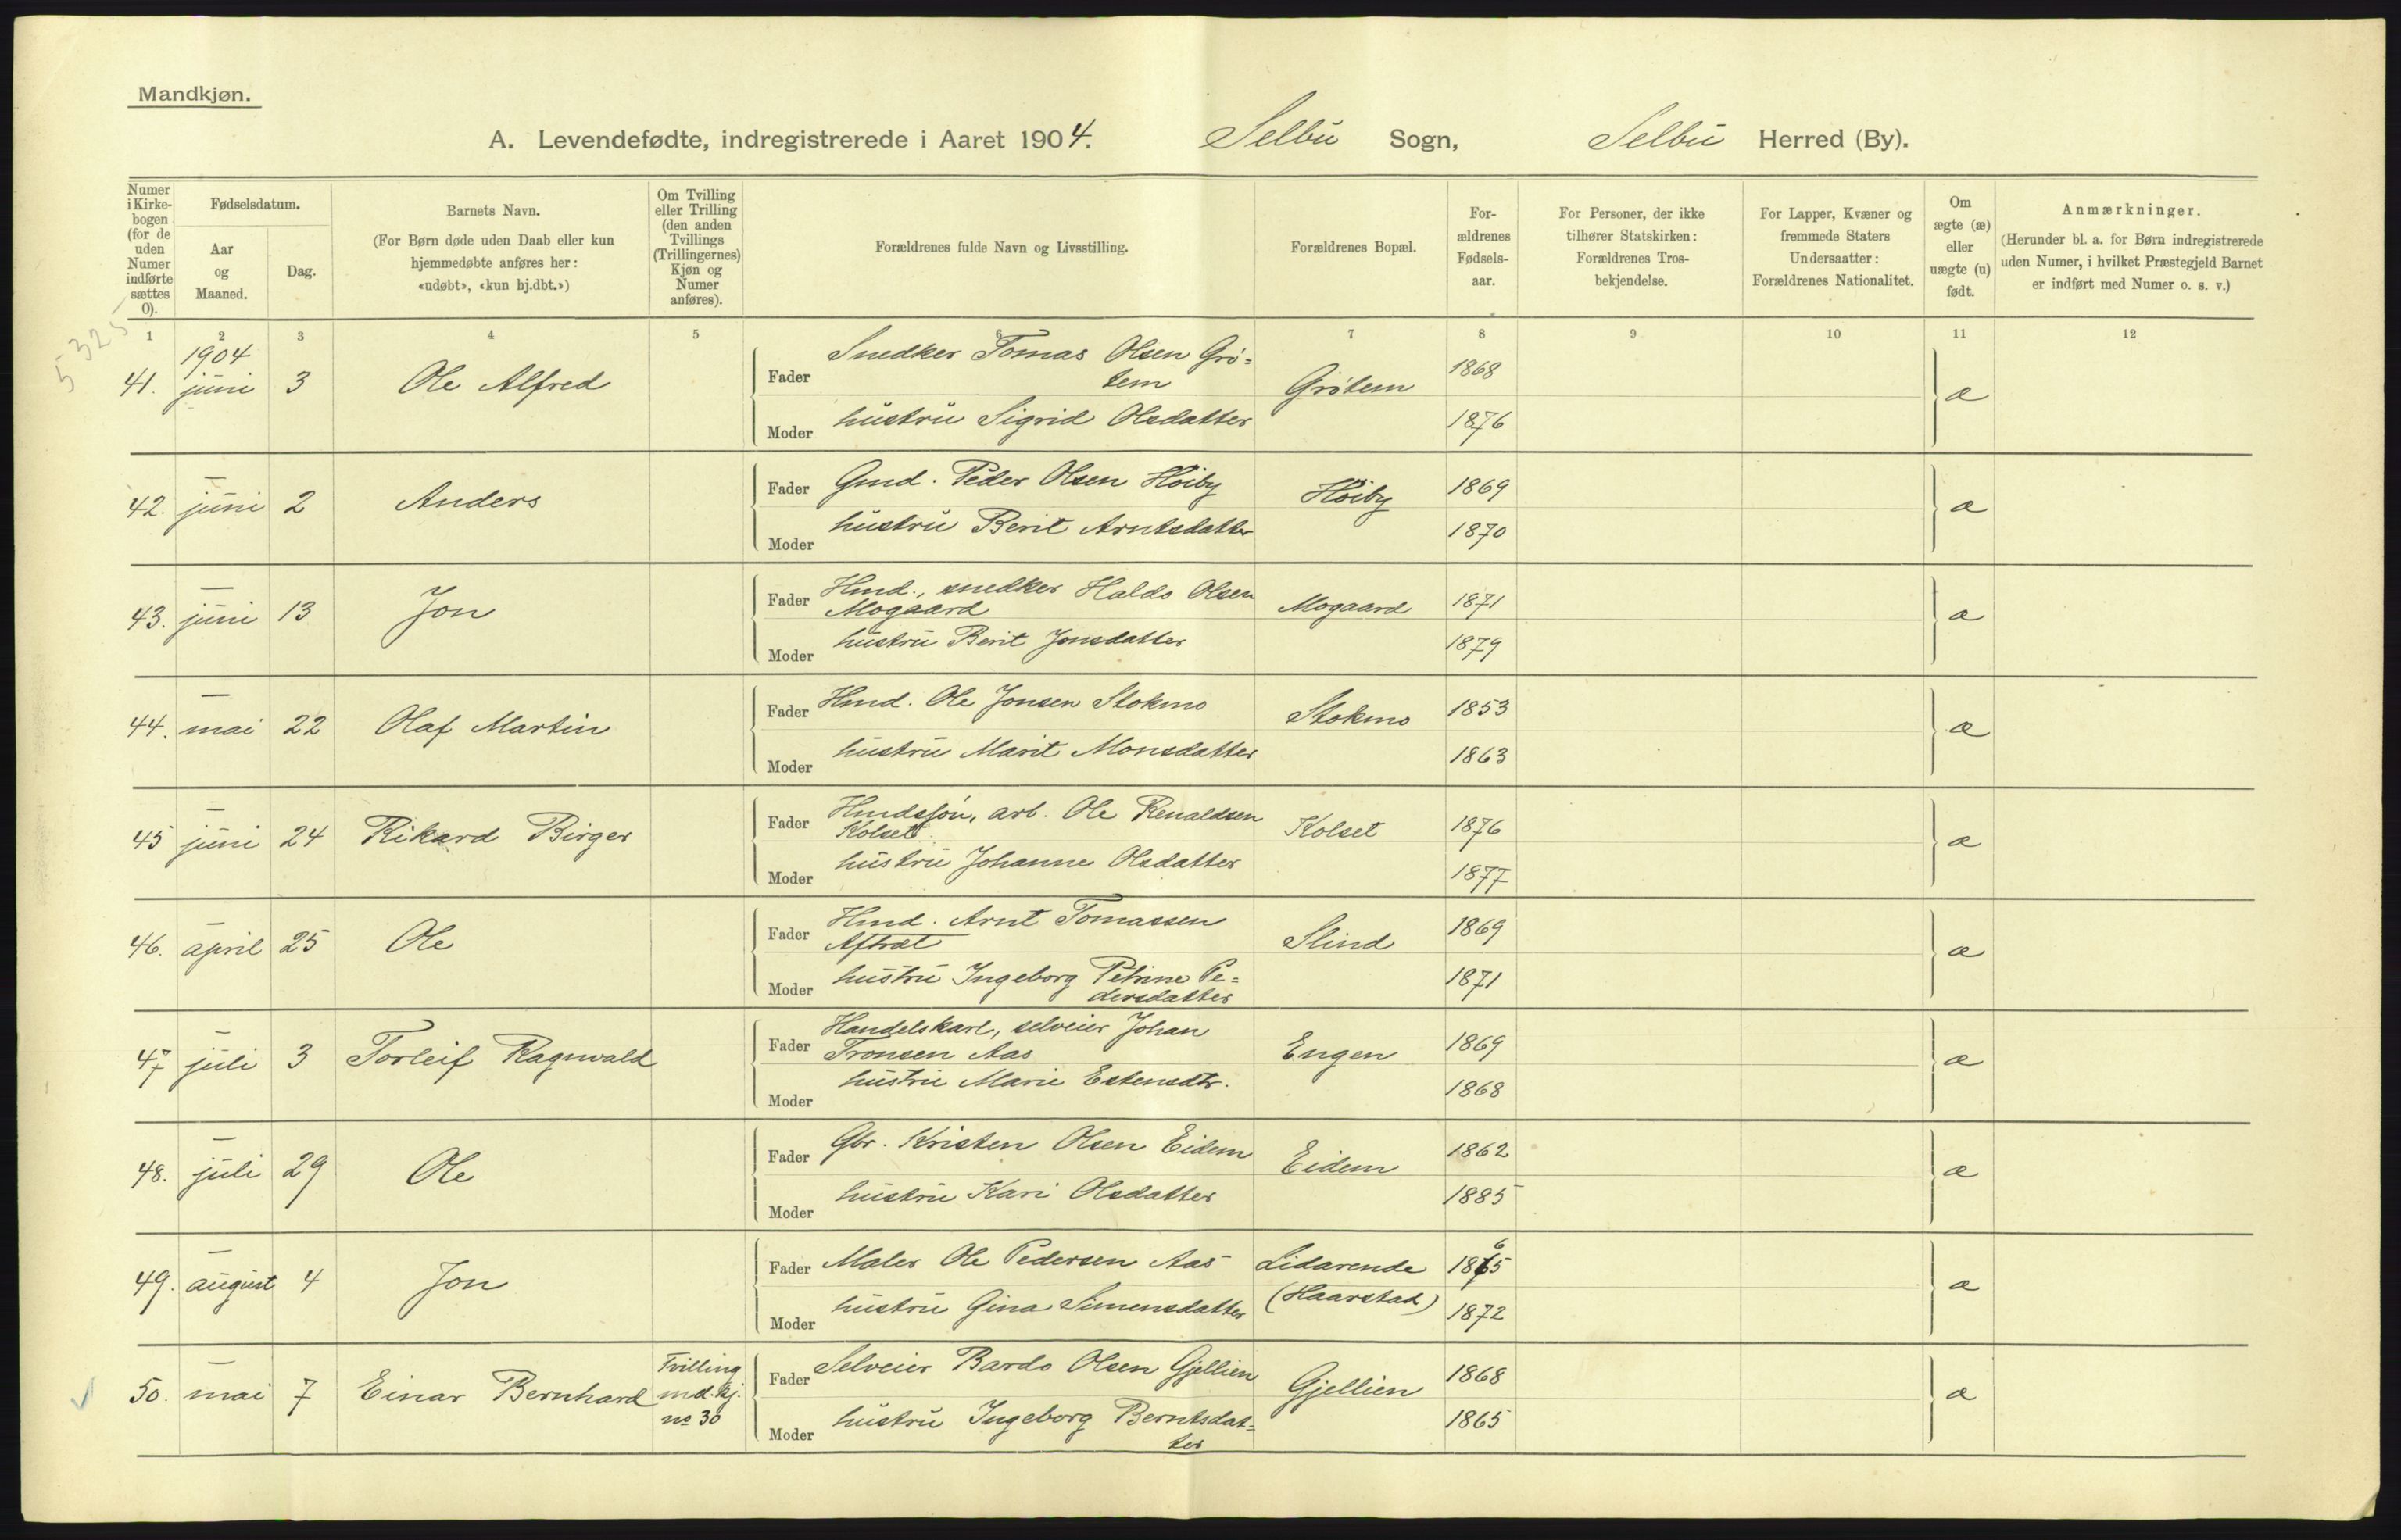 Mandkjøn.
A. Levendefødte, indregistrerede i Aaret 1904. Selbu Sogn, Selbu Herred (By).
Numer i Kirke-bogen (for de uden Numer indførte sættes 0).
Fødselsdatum.
Aar og Maaned.
Dag.
Barnets Navn.
(For Børn døde uden Daab eller kun hjemmedøbte anføres her: «udøbt», «kun hj.dbt.»)
Om Tvilling eller Trilling (den anden Tvillings (Trillingernes) Kjøn og Numer anføres).
Forældrenes fulde Navn og Livsstilling.
Forældrenes Bopæl.
For-ældrenes Fødsels-aar.
For Personer, der ikke tilhører Statskirken: Forældrenes Tros-bekjendelse.
For Lapper, Kvæner og fremmede Staters Undersaatter: Forældrenes Nationalitet.
Om ægte (æ) eller uægte (u) født.
Anmærkninger.
(Herunder bl. a. for Børn indregistrerede uden Numer, i hvilket Præstegjeld Barnet er indført med Numer o. s. v.)
1 2 3 4 5 6 7 8 9 10 11 12
5325
1904
41. juni 3 Ole Alfred
Fader Snedker Tomas Olsen Grö=
tem Grötem 1868 æ
Moder hustru Sigrid Olsdatter 1876
42. — juni 2 Anders
Fader Gmd. Peder Olsen Höiby Höiby 1869 æ
Moder hustru Berit Arntsdatter 1870
43. — juni 13 Jon
Fader Hmd., snedker Haldo Olsen
Mogaard Mogaard 1871 æ
Moder hustru Berit Jonsdatter 1879
44. — mai 22 Olaf Martin
Fader Hmd. Ole Jonsen Stokmo Stokmo 1853 æ
Moder hustru Marit Monsdatter 1863
45 — juni 24 Rikard Birger
Fader Hmdssön, arb. Ole Renaldsen
Kolset Kolset 1876 æ
Moder hustru Johanne Olsdatter 1877
46. — april 25 Ole
Fader Hmd. Arnt Tomassen
Aftræt Slind 1869 æ
Moder hustru Ingeborg Petrine Pe=
dersdatter 1871
47 — juli 3 Torleif Ragnvald
Fader Handelskarl, selveier Johan
Tronsen Aas Engen 1869 æ
Moder hustru Marie Estensdtr. 1868
48. — juli 29 Ole
Fader Gbr. Kristen Olsen Eidem Eidem 1862 æ
Moder hustru Kari Olsdatter 1885
49. — august 4 Jon
Fader Maler Ole Pedersen Aas Lidarende 1865 æ
Moder hustru Gina Simensdatter (Haarstad) 1872
50. — mai 7 Einar Bernhard Tvilling
md.kj.
no 30
Fader Selveier Bardo Olsen Gjellien Gjellien 1868 æ
Moder hustru Ingeborg Berntsdat=
ter 1865